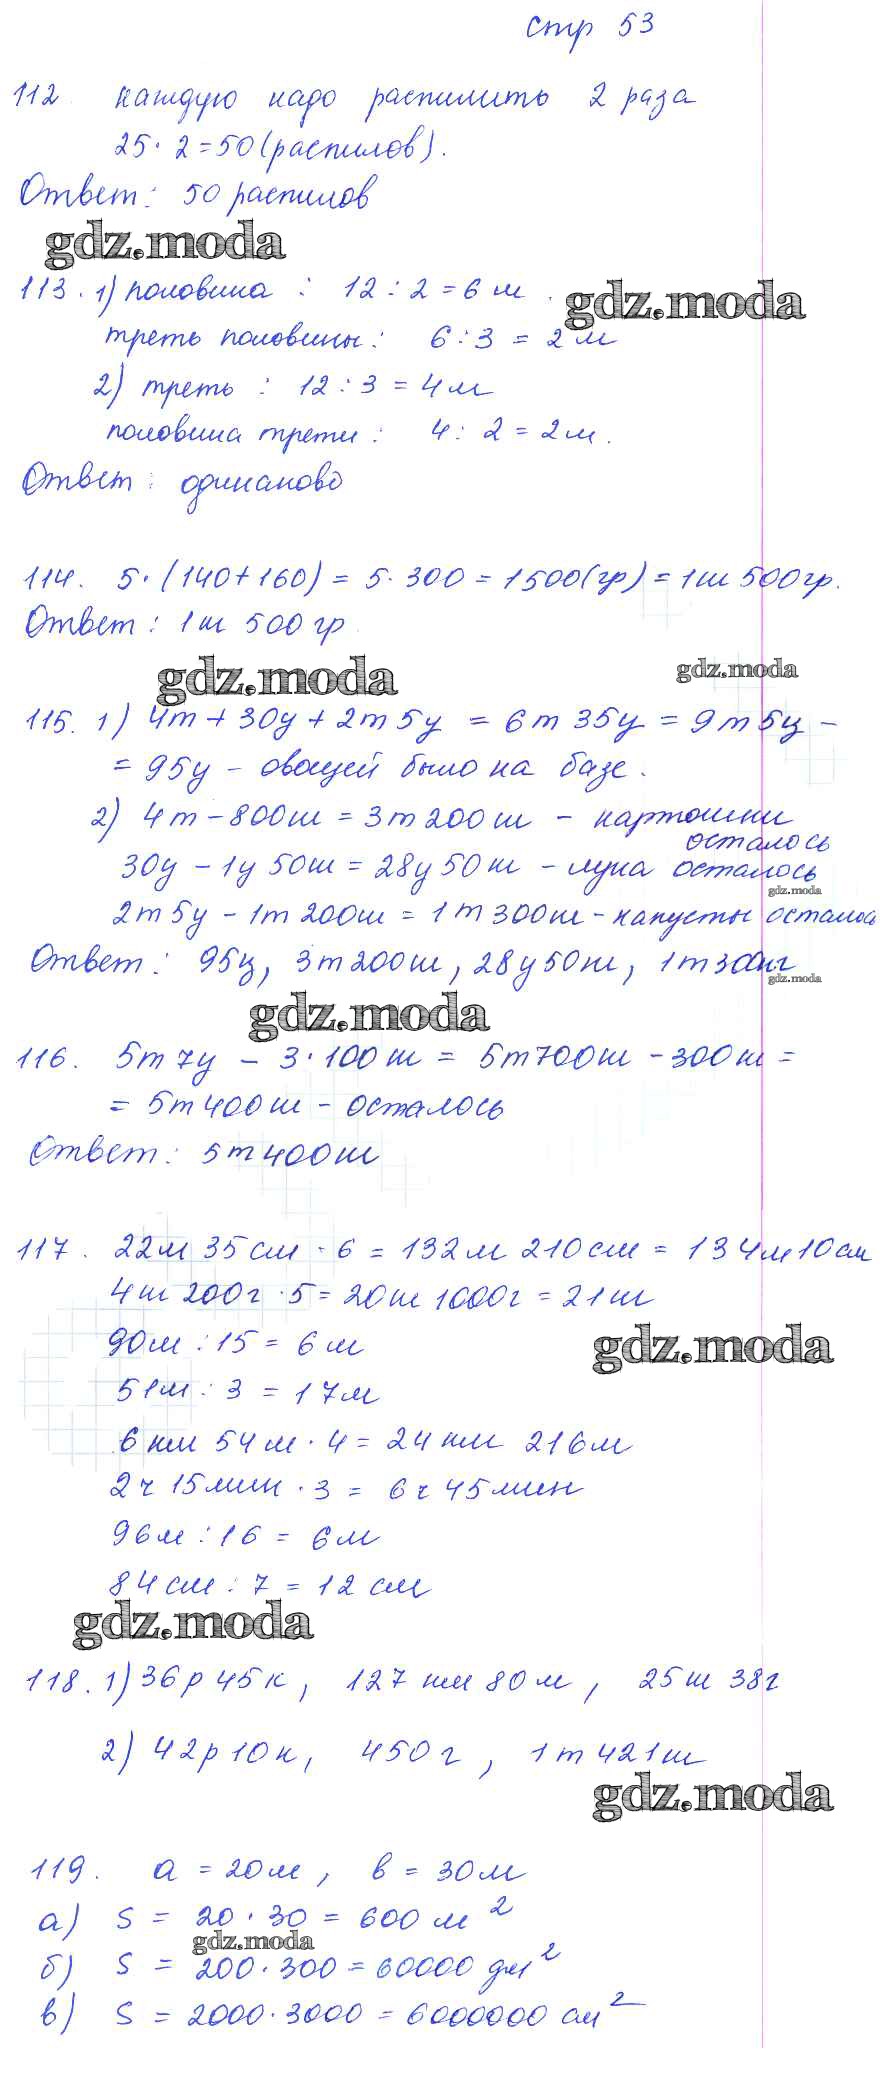 стр 53
112. каждую надо распилить 2 раза
25 · 2 = 50 (распилов).
Ответ: 50 распилов
gdz.moda
113. 1) половина : 12 : 2 = 6 м.
gdz.moda
треть половины: 6 : 3 = 2 м
2) треть : 12 : 3 = 4 м
половина трети: 4 : 2 = 2 м.
Ответ: одинаково
114. 5 · (140 + 160) = 5 · 300 = 1500 (гр) = 1 кг 500 гр.
Ответ: 1 кг 500 гр
gdz.moda
gdz.moda
115. 1) 4т + 30ц + 2т 5ц = 6т 35ц = 9т 5ц =
= 95ц - овощей было на базе.
2) 4т - 800кг = 3т 200кг - картошки
осталось
30ц - 1ц 50кг = 28ц 50кг - лука осталось
gdz.moda
2т 5ц - 1т 200кг = 1т 300кг - капусты осталось
Ответ: 95ц, 3т 200кг, 28ц 50кг, 1т 300кг
gdz.moda
gdz.moda
116. 5т 7ц - 3 · 100кг = 5т 700кг - 300кг =
= 5т 400кг - осталось
Ответ: 5т 400кг
117. 22м 35см · 6 = 132м 210см = 134м 10см
4кг 200г · 5 = 20кг 1000г = 21кг
90м : 15 = 6м
gdz.moda
51м : 3 = 17м
6км 54м · 4 = 24км 216м
2ч 15мин · 3 = 6ч 45мин
96м : 16 = 6м
84см : 7 = 12см
gdz.moda
118. 1) 36р 45к, 127км 80м, 25кг 38г
2) 42р 10к, 450г, 1т 421кг
gdz.moda
119. а = 20м, в = 30м
а) S = 20 · 30 = 600 м²
gdz.moda
б) S = 200 · 300 = 60000 дм²
в) S = 2000 · 3000 = 6000000 см²